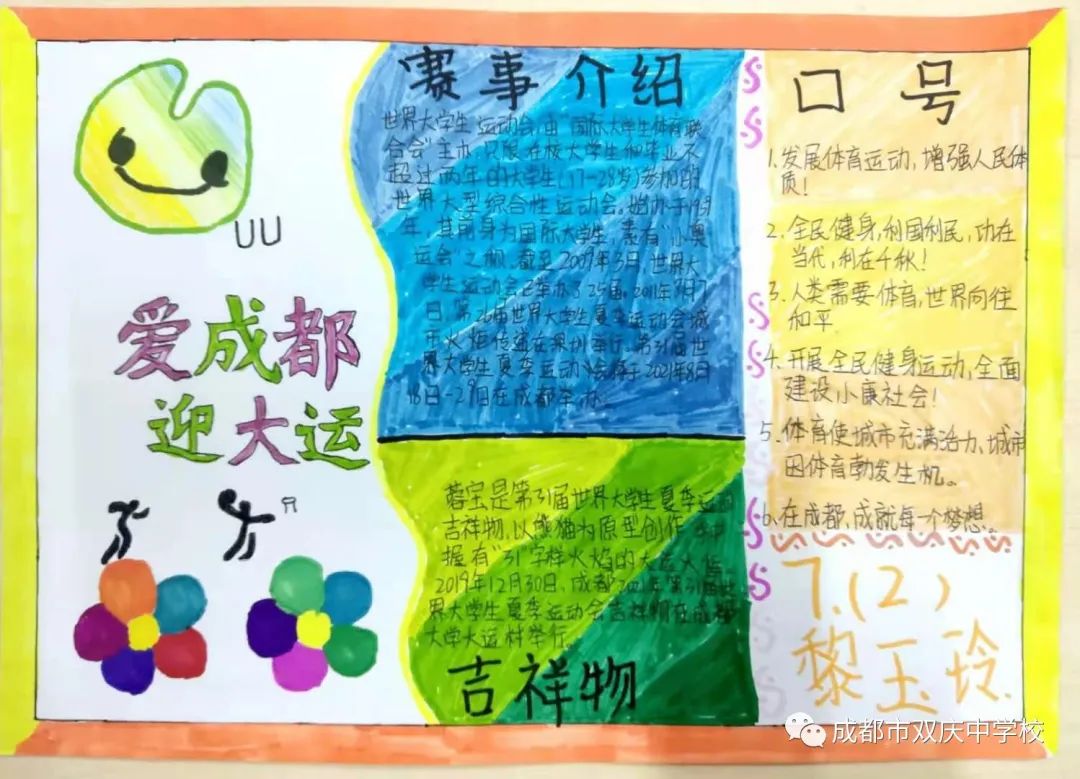 UU
爱成都
迎大运
赛事介绍
世界大学生运动会,由"国际大学生体育联
合会"主办,只限在校大学生和毕业不
超过两年的大学生(17-28岁)参加的
世界大型综合性运动会。始办于1959
年,其前身为国际大学生,素有"小奥
运会"之称。截至2009年3月,世界大
学生运动会已举办了25届。2011年
日,第26届世界大学生夏季运动会城
市火炬传递在深圳举行。第31届世
界大学生夏季运动会将于2021年8月
18日-29日在成都举办。
蓉宝是第31届世界大学生夏季运
吉祥物,以熊猫为原型创作
握有"31"字样火焰的大运火炬。
2019年12月30日,成都2021年第31届世
界大学生夏季运动会吉祥物在成都
大学大运村举行。
吉祥物
口号
1.发展体育运动,增强人民体
质!
2.全民健身,利国利民,功在
当代,利在千秋!
3.人类需要体育,世界向往
和平
4.开展全民健身运动,全面
建设小康社会!
5.体育使城市充满活力、城市
因体育勃发生机。
6.在成都,成就每个梦想。
7.(2)
黎玉玲.
成都市双庆中学校